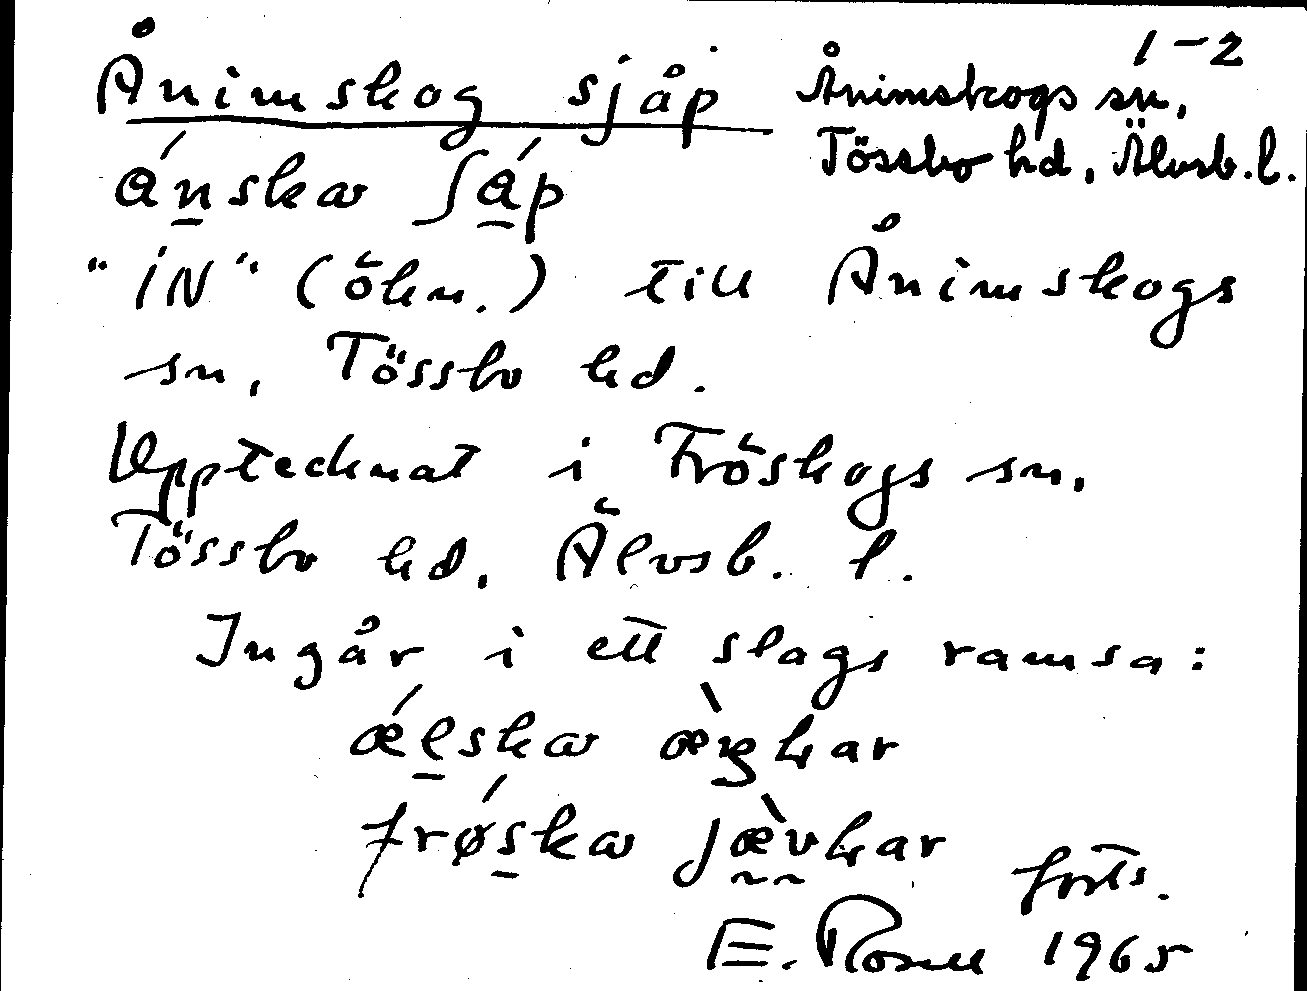 1-2
Ånimskog sjåp Ånimskogs sn,
Tössbo hd, Älvsb. l.
ánskɷ ʃáp
"IN" (ökn.) till Ånimskogs
sn, Tössbo hd.
Upptecknat i Fröskogs sn,
Tössbo hd, Älvsb. l.
Ingår i ett slags ramsa:
ǽlskɷ
frǿskɷ
forts.
E. Rosell 1965